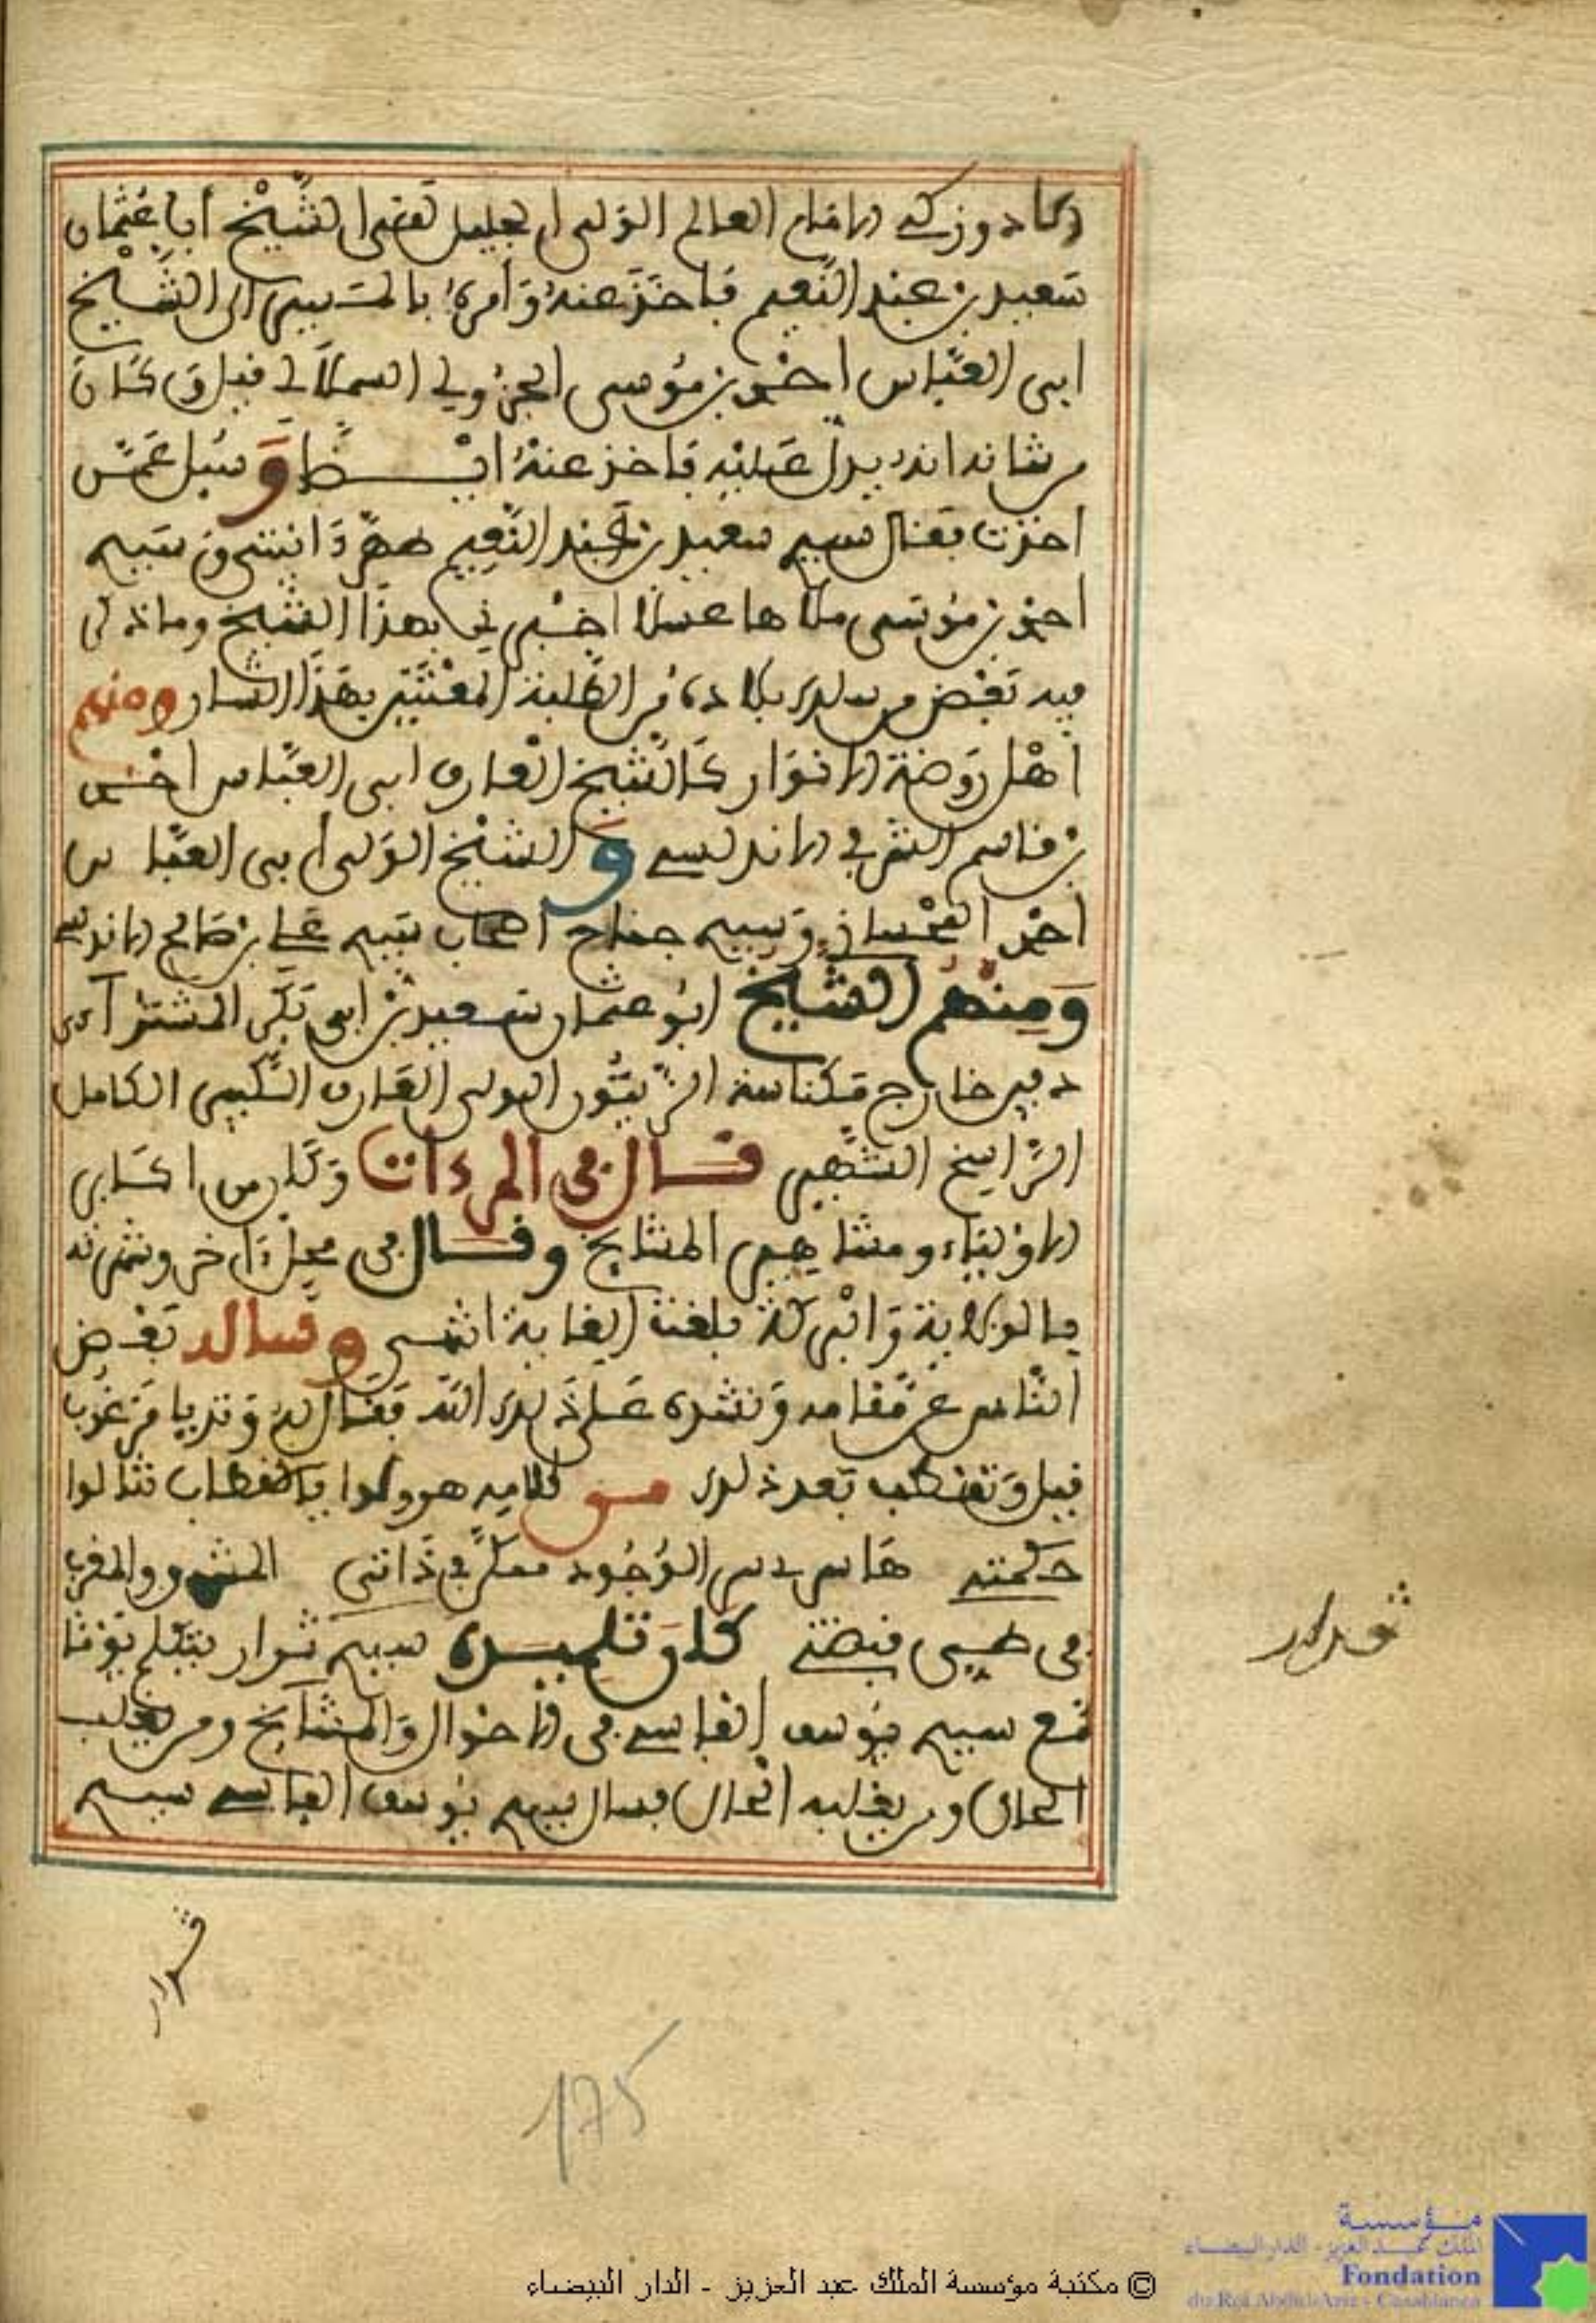 الامام العالم الولي الجليل الشيخ أبا عثمان
سعيد بن عبد النعيم فأخذ عنه وأمره بالمسير الى الشيخ
ابى العباس احمد بن موسى الجزولي السملالي قبل وكان
من شانه انه يدل عليه فاخذ عنه ايضا وسيل عمن
اخذت فقال سيدي سعيد بن عبد النعيم وسيدي
احمد بن موسى ملاها عسلا اخبرني بهذا الشيخ وما ذكر
فيه بعض من بلاده من الطلبة المعتنين بهذا الشان ومنهم
أهل روضة الانوار كالشيخ العارف ابى العباس احمد
بن قاسم الشرفي الاندلسي و الشيخ الولى أبى العباس
احمد وسيدي جناح اصحاب سيدي علي بن صالح الاندلسي
ومنهم الشيخ ابو عثمان سعيد بن ابى بكر المشنزآءى
دفين خارج مكناسة الزيتون الولى العارف الكبير الكامل
الراسخ الشهير قال في المرءات وكان من اكابر
الاولياء ومشاهير المشايخ وقال في محل ءاخر وشهرته
بالولاية والبركة بلغت الغاية انتهى وسال بعض
الناس عن مقامه ونشده على ذلك الله فقال له وتديا من غرب
قبل وتقطب بعد ذلك من كلامه هو ولوا يا اقطاب شالوا
حكمته هاس الوجود معكز في ذاتى المشرق والمغرب
في طي قبضتى كان تلميذه سيدي ثوار يتكلم يوما
مع سيدي يوسف الفاسي في الاحوال والمشايخ ومن يغلب
الحال ومن يغلبه الحال فسال سيدي يوسف الفاسي سيدي
ثوار
175
© مكتبة مؤسسة الملك عبد العزيز - الدار البيضاء
مؤسسة
الملك عبد العزيز - الدار البيضاء
Fondation
du Roi Abdul-Aziz - Casablanca